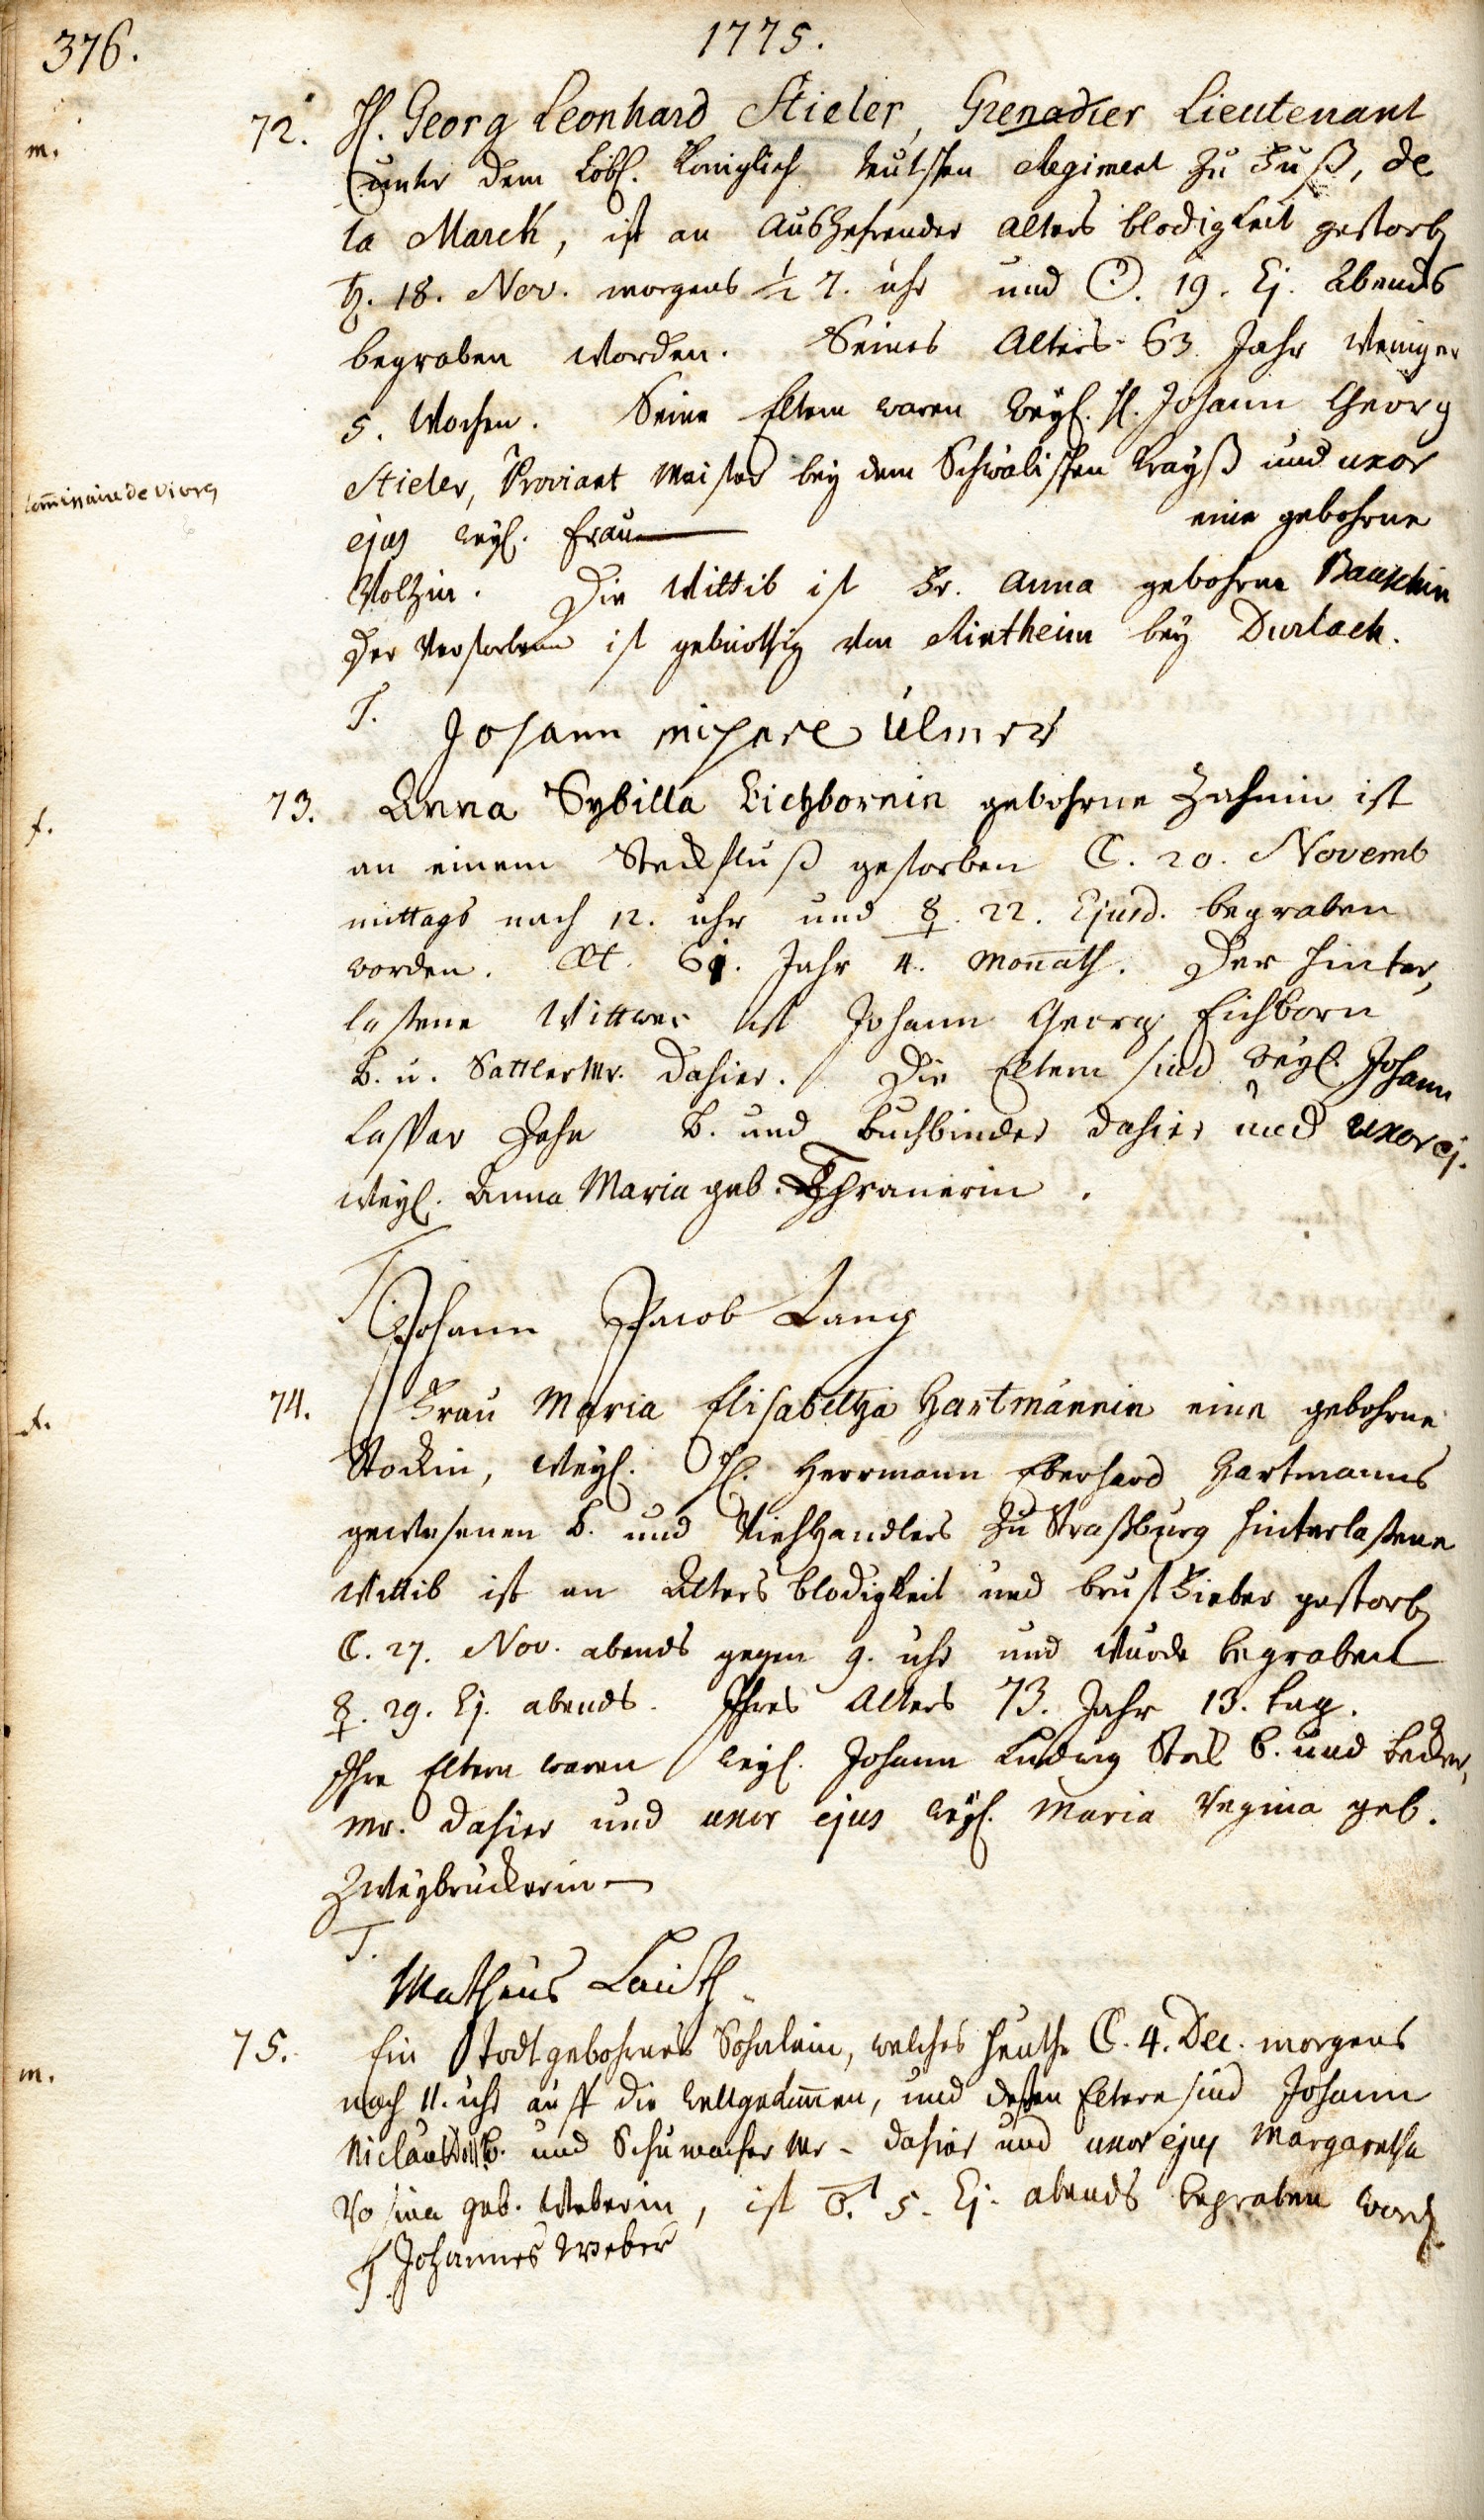 376.
1775.
m.
72. H. Georg Leonhard Stieler, Grenadier Lieutenant
unter dem Löbl. Königlich teutschen Regiment zu Fuß, de
la Marck, ist an auszehrender Alters blödigkeit gestorb
♄. 18. Nov. morgens ½ 7. uhr und ☉. 19. Ej. Abends
begraben worden. Seines Alters 63 Jahr weniger
5. Wochen. Seine Eltern waren weyl. H. Johann Georg
Stieler, Proviant Meister bey dem Schwäbischen Krayß und uxor
Commissaire de vivres
ejus weyl. Frau— eine gebohrne
Volzin. Die Wittib ist Fr. Anna gebohrne
Der Verstorbene ist gebürthig von Rintheim bey Durlach.
T. Johann michael ulmer
f.
73. Anna Sybilla Eichbornin gebohrne Zahnin ist
an einem Steckfluß gestorben ☾. 20. Novemb
mittags nach 12. uhr und ☿. 22. Ejusd. begraben
worden. Æt. 61. Jahr 4. Monath. Der hinter,
lassene Wittwer ist Johann Georg Eichborn
B. u. Sattler Mr. dahier. Die Eltern sind weyl. Johann
Caspar Zahn B. und Buchbinder dahier und uxor ej.
weyl. Anna Maria geb. Thranerin.
T. Johann Jacob Lang
f.
74. Frau Maria Elisabetha Hartmännin eine gebohrne
Stockin, weyl. H. Herrmann Eberhard Hartmanns
gewesenen B. und Viehhandlers zu Straßburg hinterlaßene
Wittib ist an Alters blödigkeit und brust Fieber gestorb
☾. 27. Nov. abends gegen 9. uhr und wurde begraben
☿. 29. Ej. abends. Ihres Alters 73. Jahr 13. tag.
Ihre Eltern waren weyl. Johann Ludwig Stock B. und Becker,
Mr. dahier und uxor ejus weyl. Maria Regina geb.
Zweybruckerin—
T. Matheus Lauth
m.
75. Ein todtgebohrnes Söhnlein, welches heuthe ☾. 4. Dec. morgens
nach 11. uhr auff die welt gekommen, und deßen Eltern sind Johann
Niclaus B. und Schumacher Mr. dahier und uxor ejus Margaretha
Rosina geb. Weberin, ist ♂. 5. Ej. abends begraben word
T. Johannes Weber